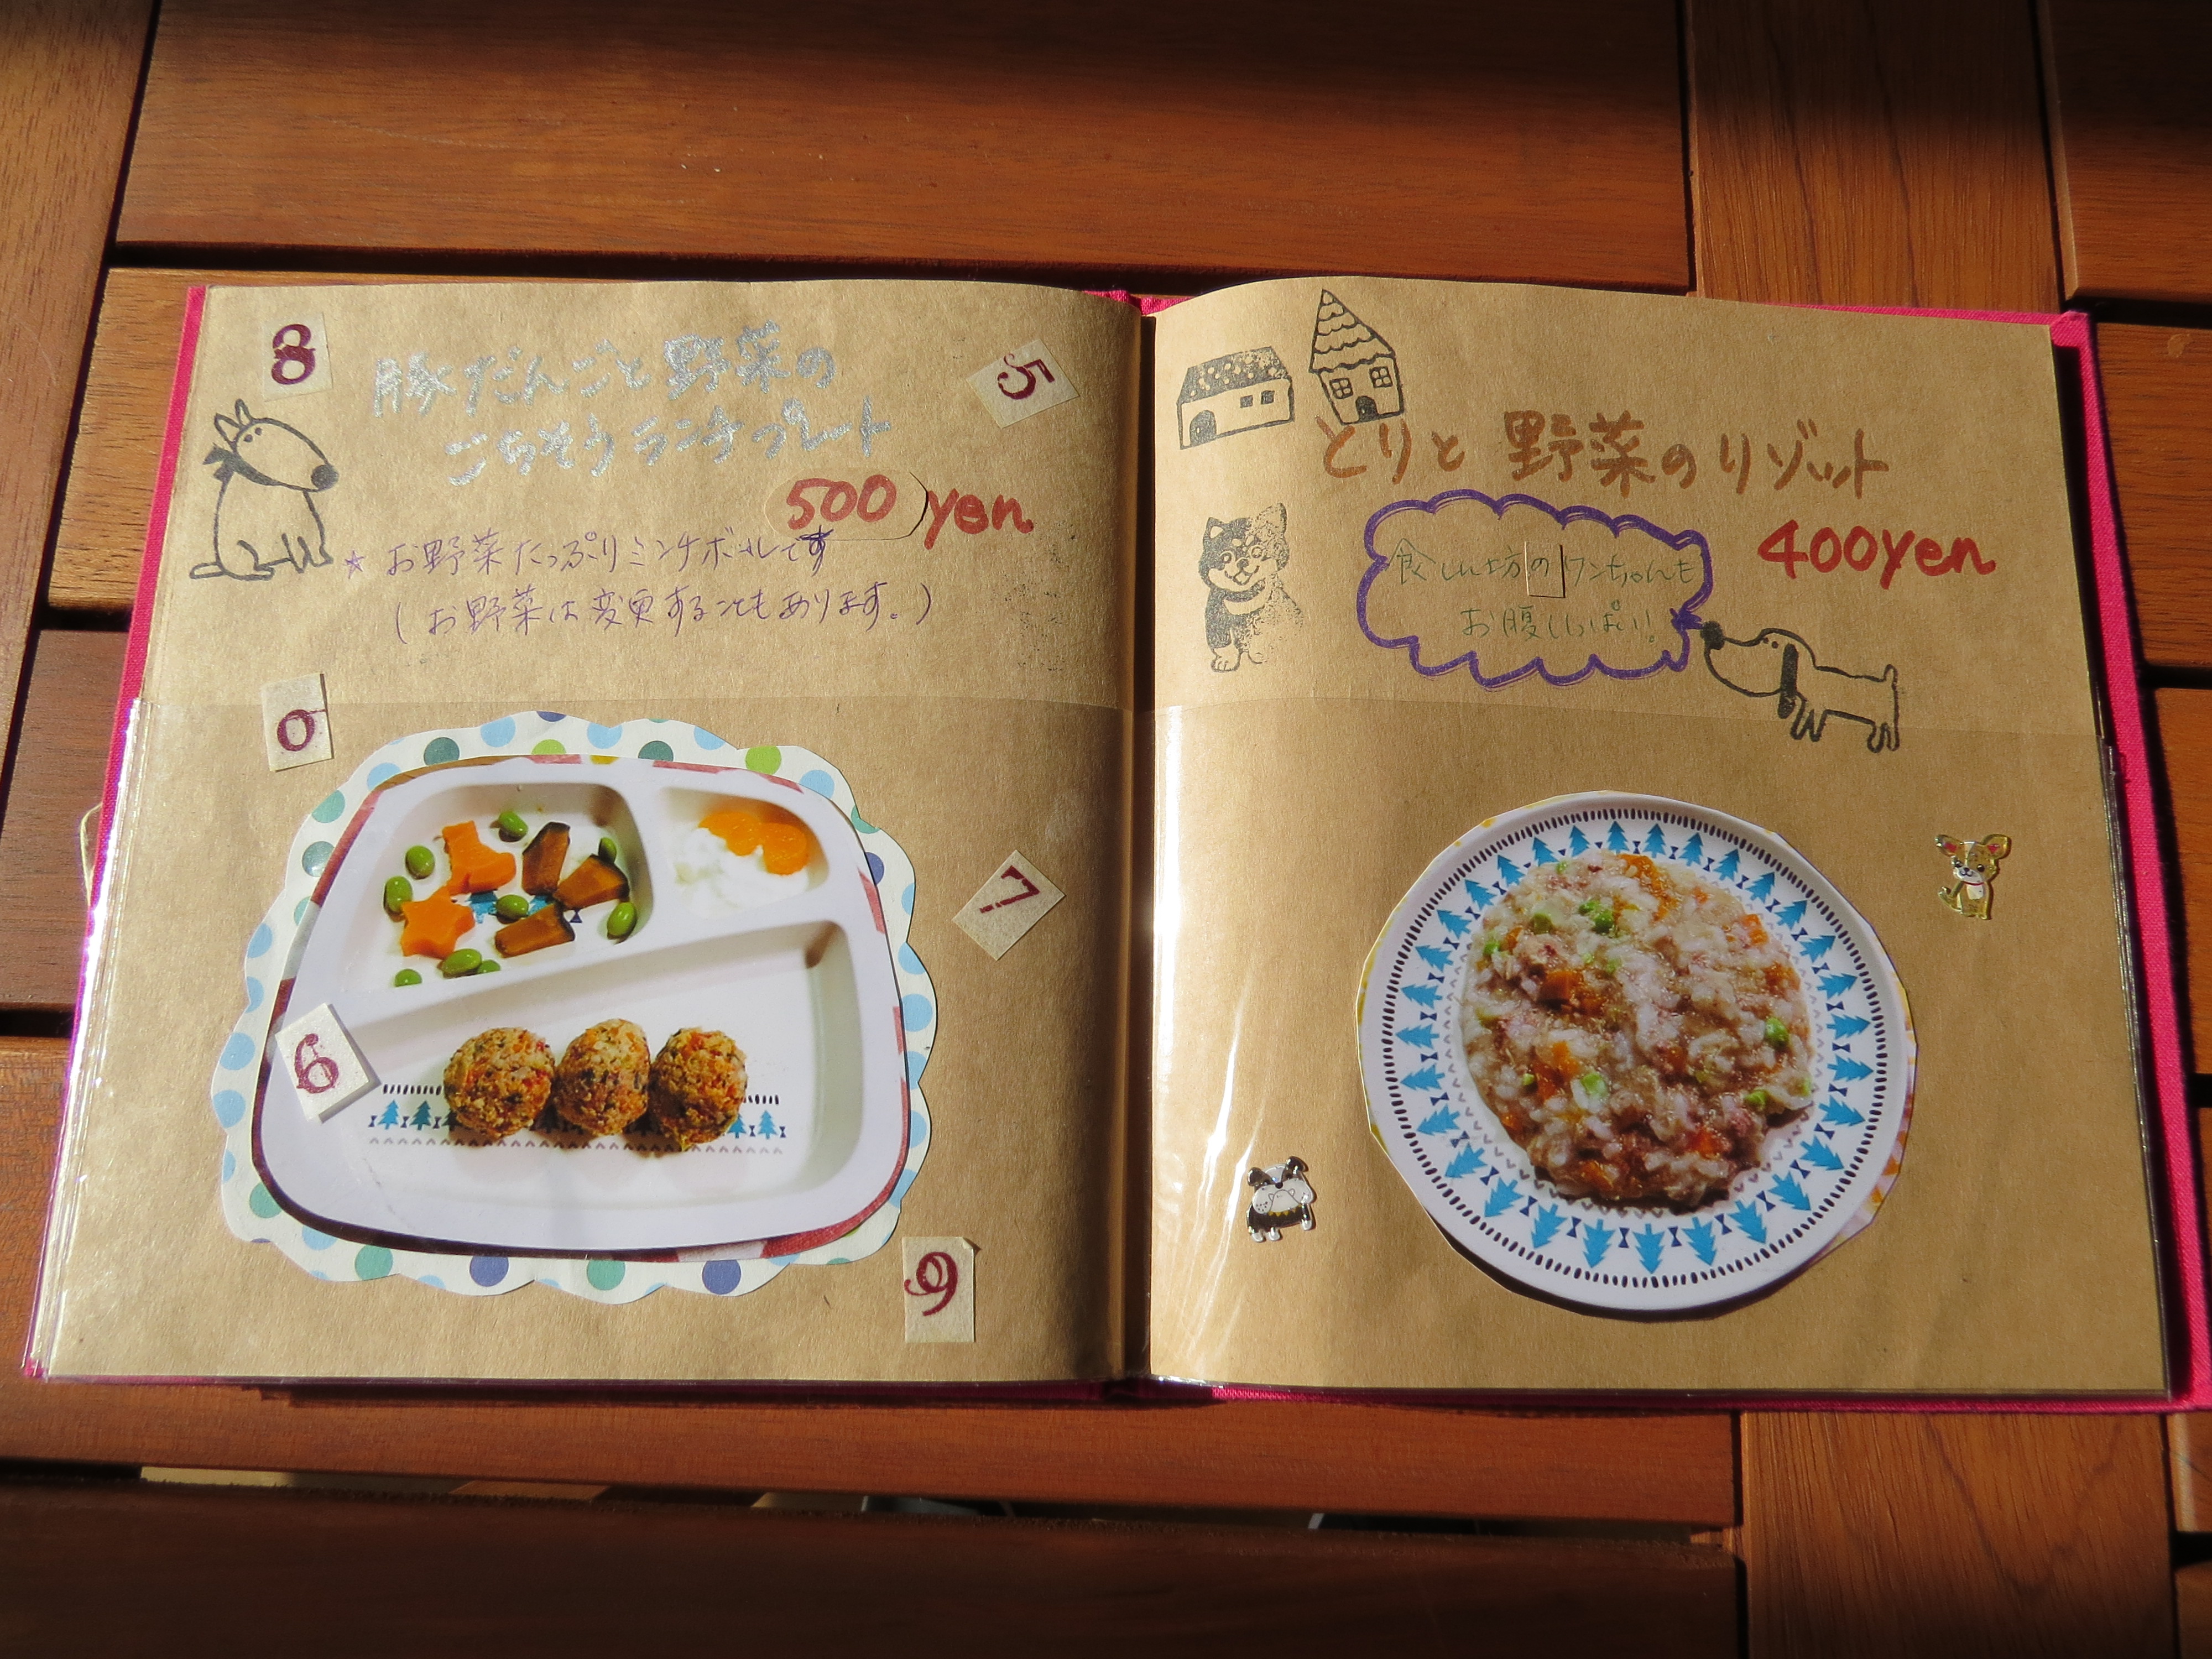 8
豚だんごと野菜の
5
ごちそうランチプレート
500 yen
★ お野菜たっぷりミンチボールです
(お野菜は変更することもあります。)
0
7
6
9
とりと野菜のリゾット
400yen
食いしん坊のワンちゃんも
お腹いっぱい!